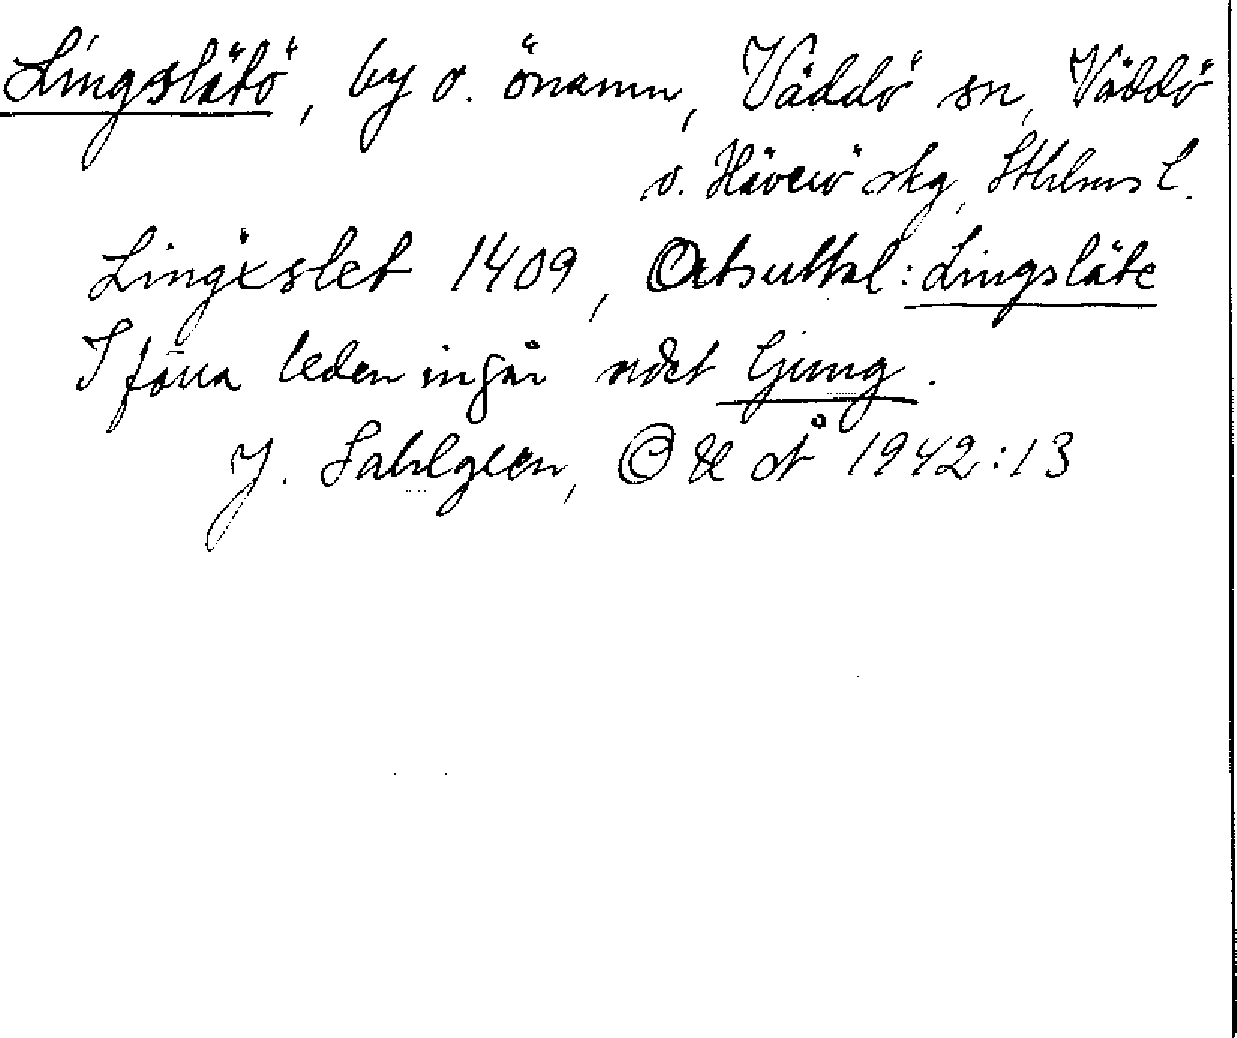 Lingslätö, by o. önamn, Väddö sn, Väddö
o. Häverö skg, Sthlms l.
Lingxslet 1409, Ortsuttal: Lingsläte
I förra leden ingår ordet ljung.
J. Sahlgren, O & N 1942:13